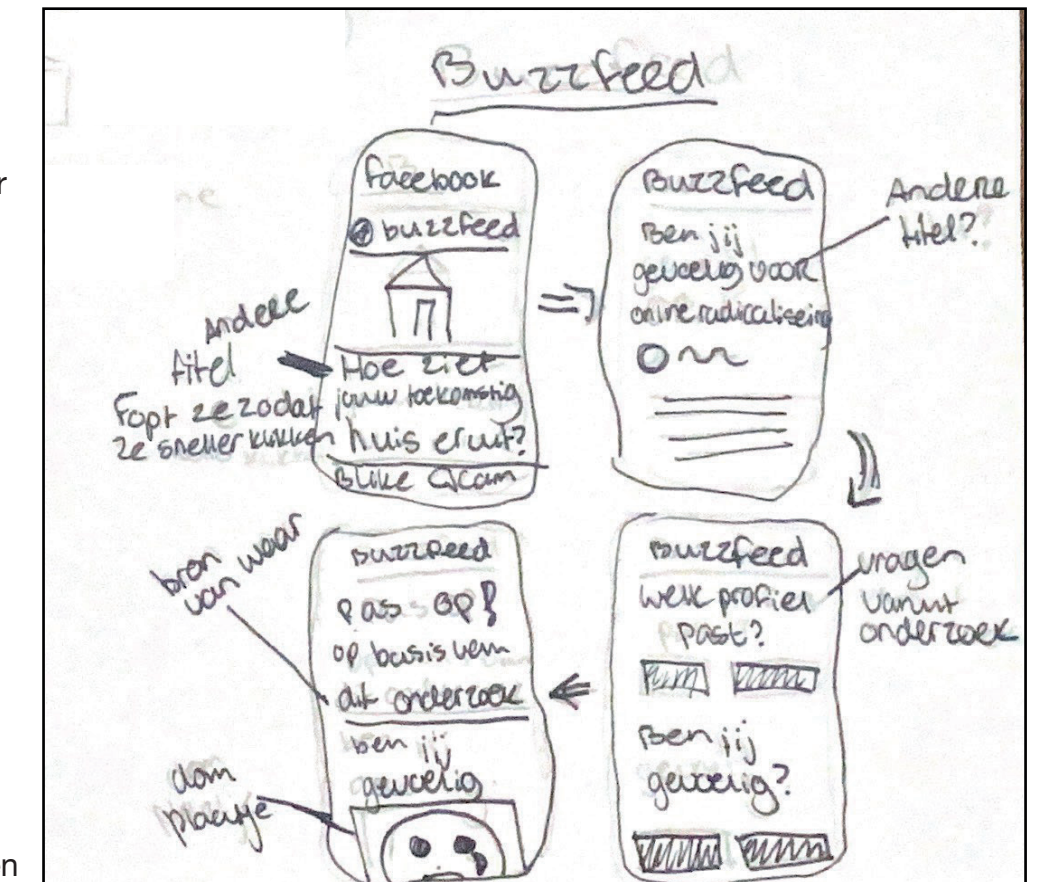 Buzzfeed
facebook
buzzfeed
Hoe ziet
jouw toekomstig
huis eruit?
Andere
titel
Fopt ze zodat
ze sneller klikken
Buzzfeed
Ben jij
gevoelig voor
online radicaliseing
Andere
titel?
Buzzfeed
welk profiel
past?
Ben jij
gevoelig?
vragen
vanuit
onderzoek
Buzzfeed
pas op!
op basis van
dit onderzoek
ben jij
gevoelig
bron
van waar
dom
plaatje
r
en